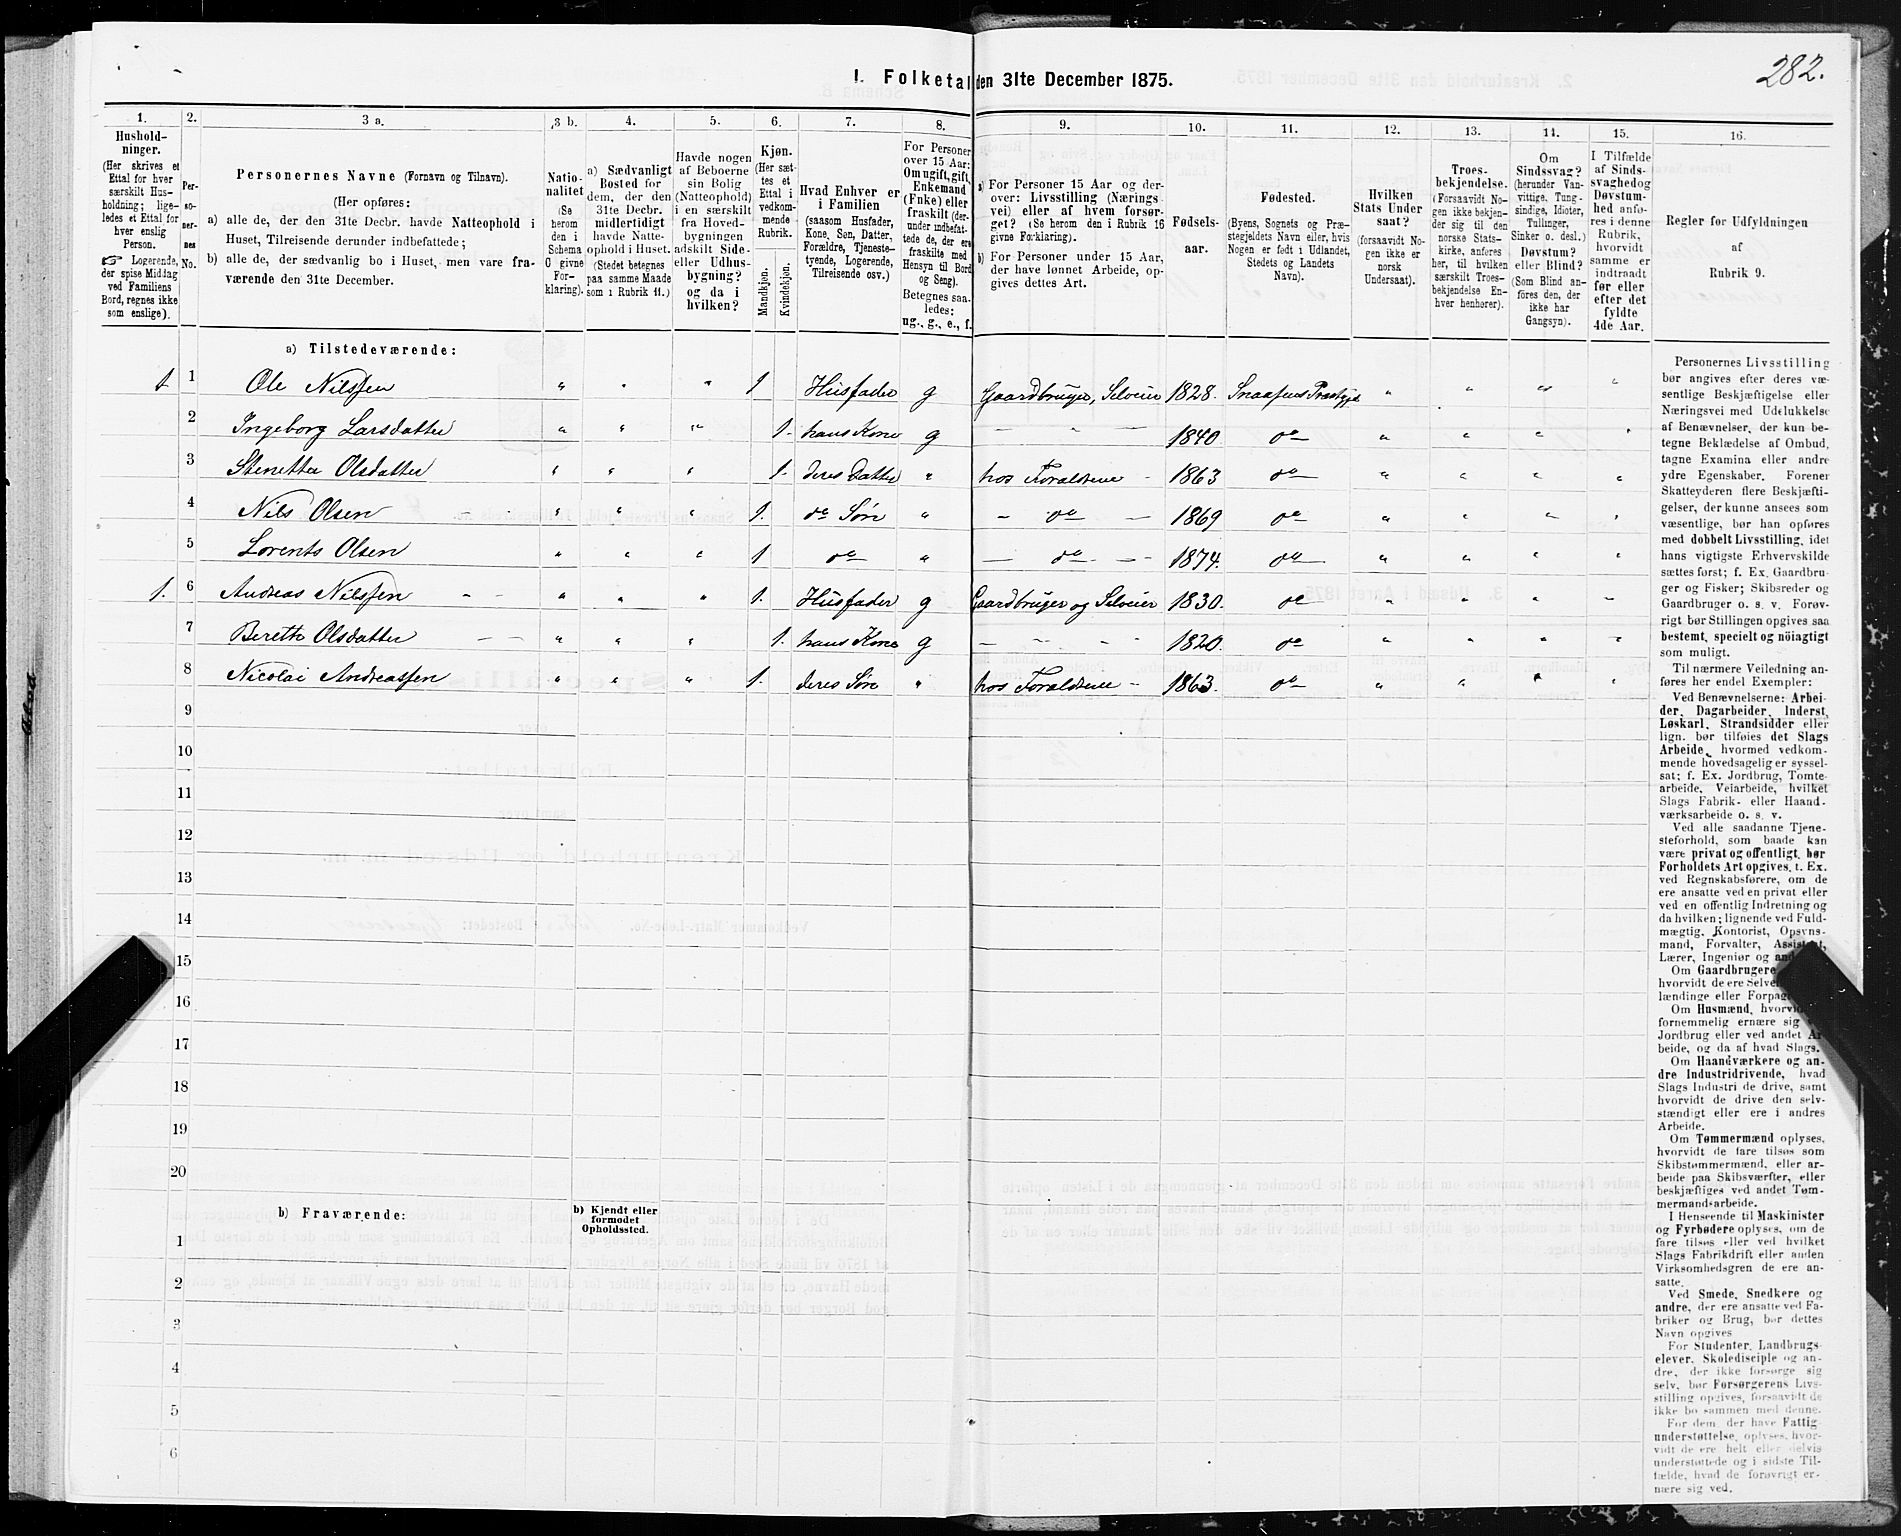 282.
1. Folketal den 31te December 1875.
1.
2.
3 a.
3 b.
4.
5.
6.
7.
8.
9.
10.
11.
12.
13.
14.
15.
16.
Hushold-
ninger.
(Her skrives et
Ettal for hver
særskilt Hus-
holdning; lige-
ledes et Ettal for
hver enslig
Person.
☞ Logerende,
der spise Middag
ved Familiens
Bord, regnes ikke
som enslige).
Per-
so-
ner-
nes
No.
Personernes Navne (Fornavn og Tilnavn).
(Her opføres:
a) alle de, der den 31te Decbr. havde Natteophold i
Huset, Tilreisende derunder indbefattede;
b) alle de, der sædvanlig bo i Huset, men vare fra-
værende den 31te December.
Natio-
nalitet
(Se
herom
den i
Schema
O givne
For-
klaring).
a) Sædvanligt
Bosted for
dem, der den
31te Decbr.
midlertidigt
havde Natte-
ophold i Huset.
(Stedet betegnes
paa samme Maade
som i Rubrik 11.)
Havde nogen
af Beboerne
sin Bolig
(Natteophold)
i en særskilt
fra Hoved-
bygningen
adskilt Side-
eller Udhus-
bygning?
og da i
hvilken?
Kjøn.
(Her sæt-
tes et
Ettal i
vedkom-
mende
Rubrik.
Mandkjøn.
Kvindekjøn.
Hvad Enhver er
i Familien
(saasom Husfader,
Kone, Søn, Datter,
Forældre, Tjeneste-
tyende, Logerende,
Tilreisende osv.)
For Personer
over 15 Aar:
Om ugift, gift,
Enkemand
(Enke) eller
fraskilt (der-
under indbefat-
tede de, der ere
fraskilte med
Hensyn til Bord
og Seng).
Betegnes saa-
ledes:
ug., g., e., f.
a) For Personer 15 Aar og der-
over: Livsstilling (Nærings-
vei) eller af hvem forsør-
get? (Se herom den i Rubrik 16
givne Forklaring).
b) For Personer under 15 Aar,
der have lønnet Arbeide, op-
gives dettes Art.
Fødsels-
aar.
Fødested.
(Byens, Sognets og Præ-
stegjeldets Navn eller, hvis
Nogen er født i Udlandet,
Stedets og Landets
Navn).
Hvilken
Stats Under
saat?
(forsaavidt No-
gen ikke er
norsk
Undersaat).
Troes-
bekjendelse.
(Forsaavidt No-
gen ikke bekjen-
der sig til den
norske Stats-
kirke, anføres
her, til hvilken
særskilt Troes-
bekjendelse En-
hver henhører).
Om
Sindssvag?
(herunder Van-
vittige, Tung-
sindige, Idioter,
Tullinger,
Sinker o. desl.)
Døvstum?
eller Blind?
(Som Blind an-
føres den, der
ikke har
Gangsyn).
I Tilfælde
af Sinds-
svaghed og
Døvstum-
hed anfø-
res i denne
Rubrik,
hvorvidt
samme er
indtraadt
før eller
efter det
fyldte
4de Aar.
Regler før Udfyldningen
af
Rubrik 9.
a) Tilstedeværende:
1 1 Ole Nilssen " " " 1 Husfader g Gaardbruger, Selveier 1828. Snaasens Præstgjd " " " "
2 Ingeborg Larsdatter " " " 1. hans Kone g — " — 1840 do " " " "
3 Stenetta Olsdatter " " " 1. deres Datter " hos Forældrene 1863 do " " " "
4 Nils Olsen " " " 1. do Søn " — do — 1869 do " " " "
5 Lorents Olsen " " " 1 do " — do — 1874. do " " " "
1. 6 Andreas Nilssen " " " 1. Husfader g Gaardbruger og Selveier 1830. do " " " "
7 Bereth Olsdatter " " " 1. hans Kone g — " — 1820. do " " " "
8 Nicolai Andreassen " " " 1. deres Søn " hos Forældrene 1863. do " " " "
9
10
11
12
13
14
15
16
17
18
19
20
b) Fraværende:
b) Kjendt eller
formodet
Opholdssted.
1
2
3
4
5
6
Personernes Livsstilling
bør angives efter deres væ-
sentlige Beskjæftigelse eller
Næringsvei med Udelukkelse
af Benævnelser, der kun be-
tegne Beklædelse af Ombud,
tagne Examina eller andre
ydre Egenskaber. Forener
Skatteyderen flere Beskjæfti-
gelser, der kunne ansees som
væsentlige, bør han opføres
med dobbelt Livsstilling, idet
hans vigtigste Erhvervskilde
sættes først; f. Ex. Gaardbru-
ger og Fisker; Skibsreder og
Gaardbruger o. s. v. Forøv-
rigt bør Stillingen opgives saa
bestemt, specielt og nöiagtigt
som muligt.
Til nærmere Veiledning an-
føres her endel Exempler:
Ved Benævnelserne: Arbei-
der, Dagarbeider, Inderst,
Løskarl, Strandsidder eller
lign. bør tilføies det Slags
Arbeide, hvormed vedkom-
mende hovedsagelig er syssel-
sat; f. Ex. Jordbrug, Tomte-
arbeide, Veiarbeide, hvilket
Slags Fabrik- eller Haand-
værksarbeide o. s. v.
Ved alle saadanne Tjene-
steforhold, som baade kan
være privat og offentligt, bør
Forholdets Art opgives, t. Ex.
ved Regnskabsførere, om de
ere ansatte ved en privat eller
ved en offentlig Indretning og
da hvilken; lignende ved Fuld-
mægtig, Kontorist, Opsyns-
mand, Forvalter, Assistent,
Lærer, Ingeniør og
Om Gaardbrugere
hvorvidt de ere
lændinge eller
Om Husmænd,
fornemmelig ernære sig
Jordbrug eller ved andet Ar-
beide, og da af hvad Slags.
Om Haandværkere og an-
dre Industridrivende, hvad
Slags Industri de drive, samt
hvorvidt de drive den selv-
stændigt eller ere i andres
Arbeide.
Om Tømmermænd oplyses,
hvorvidt de fare tilsøs som
Skibstømmermænd, eller ar-
beide paa Skibsværfter, eller
beskjæftiges ved andet Tøm-
mermandsarbeide.
I Henseende til Maskinister
og Fyrbødere oplyses, om de
fare tilsøs eller ved hvilket
Slags Fabrikdrift eller anden
Virksomhedsgren de ere an-
satte.
Ved Smede, Snedkere og
andre, der ere ansatte ved Fa-
briker og Brug, bør dettes
Navn opgives
For Studenter, Landbrugs-
elever, Skoledisciple og an-
dre, der ikke forsørge sig
selv, bør Forsørgerens Livs-
stilling opgives, forsaavidt de
ikke bo sammen med denne.
For dem, der have Fattig-
understøttelse, oplyses, hvor-
vidt de ere helt eller delvis
understøttede og i sidste Til-
fælde, hvad de forøvrigt er-
nære sig ved.